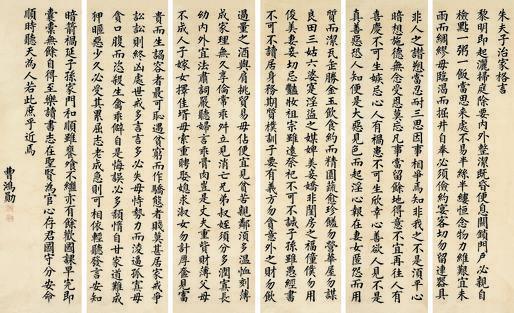 朱夫子治家格言
黎明即起灑掃庭除要內外整潔既昏便息關鎖門戶必親自
檢點一粥一飯當思來處不易半絲半縷恒念物力維艱宜未
雨而綢繆毋臨渴而掘井自奉必須儉約宴客切勿留連器具
非人之譖愬當忍耐三思因事相爭焉知非我之不是須平心
暗想施德無念受恩莫忘凡事當留餘地得意不宜再往人有
喜慶不可生嫉忌心人有禍患不可生欣幸心善欲人見不是
真善惡恐人知便是大惡見色而起淫心報在妻女匿怨而用
質而潔瓦缶勝金玉飲食約而精園蔬愈珍饈勿營華屋勿謀
良田三姑六婆實淫盜之媒婢美妾嬌非閨房之福僮僕勿用
俊美妻妾切忌豔妝祖宗雖遠祭祀不可不誠子孫雖愚經書
不可不讀居身務期質樸訓子要有義方勿貪意外之財勿飲
過量之酒與肩挑貿易毋佔便宜見貧苦親鄰須多溫恤刻薄
成家理無久享倫常乖舛立見消亡兄弟叔姪須分多潤寡長
幼內外宜法肅詞嚴聽婦言乖骨肉豈是丈夫重貲財薄父母
不成人子嫁女擇佳壻毋索重聘娶媳求淑女勿計厚奩見富
貴而生諂容者最可恥遇貧窮而作驕態者賤莫甚居家戒爭
訟訟則終凶處世戒多言言多必失毋恃勢力而凌逼孤寡毋
貪口腹而恣殺生禽乖僻自是悔誤必多頹惰自甘家道難成
狎暱惡少久必受其累屈志老成急則可相依輕聽發言安知
暗箭禍延子孫家門和順雖饔飧不繼亦有餘歡國課早完即
囊橐無餘自得至樂讀書志在聖賢為官心存君國守分安命
順時聽天為人若此庶乎近焉
曹鴻勛